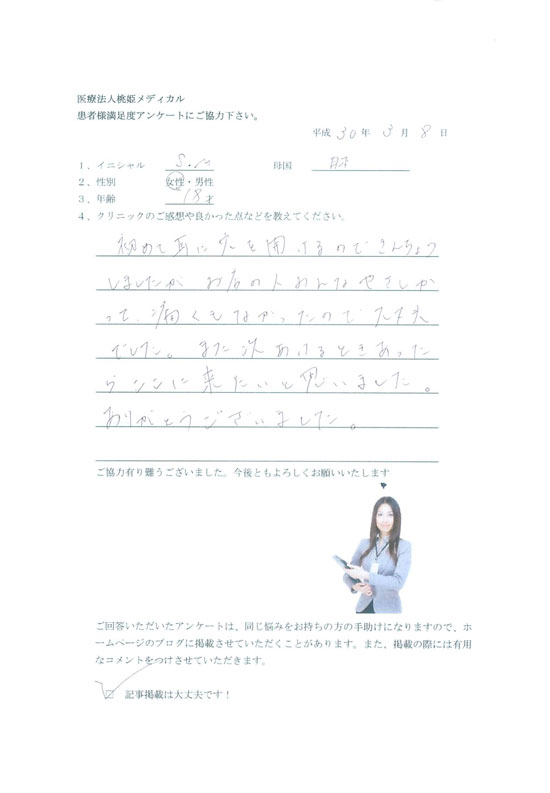 医療法人桃姫メディカル
患者様満足度アンケートにご協力下さい。
平成 30 年 3 月 8 日
1、イニシャル S.M 母国 日本
2、性別 女性・男性
3、年齢 18才
4、クリニックのご感想や良かった点などを教えてください。
初めて耳に穴を開けるのできんちょう
しましたが お店の人みんなやさしか
って、痛くもなかったので大丈夫
でした。また次あけるときあった
らココに来たいと思いました。
ありがとうございました。
ご協力有り難うございました。今後ともよろしくお願いいたします
ご回答いただいたアンケートは、同じ悩みをお持ちの方の手助けになりますので、ホ
ームページのブログに掲載させていただくことがあります。また、掲載の際には有用
なコメントをつけさせていただきます。
記事掲載は大丈夫です！